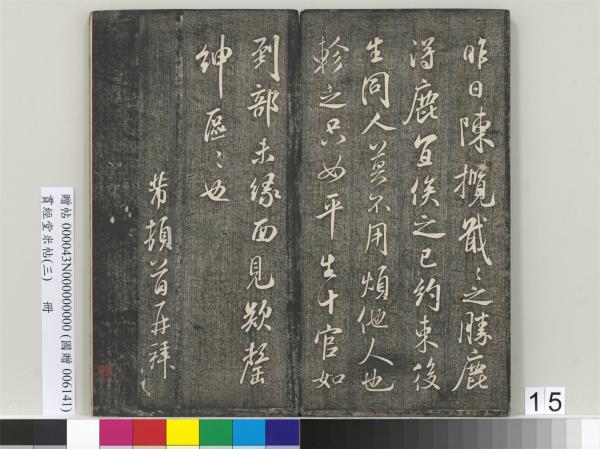 昨日陳攬戢戢之勝鹿
得鹿宜俟之已約束後
生同人莫不用煩他人也
軫之只如平生十官如
到部未緣面見欵罄
紳區區也
芾頓首再拜
贈帖 000043N000000000 (國贈 006141)
貫經堂米帖(三) 冊
15